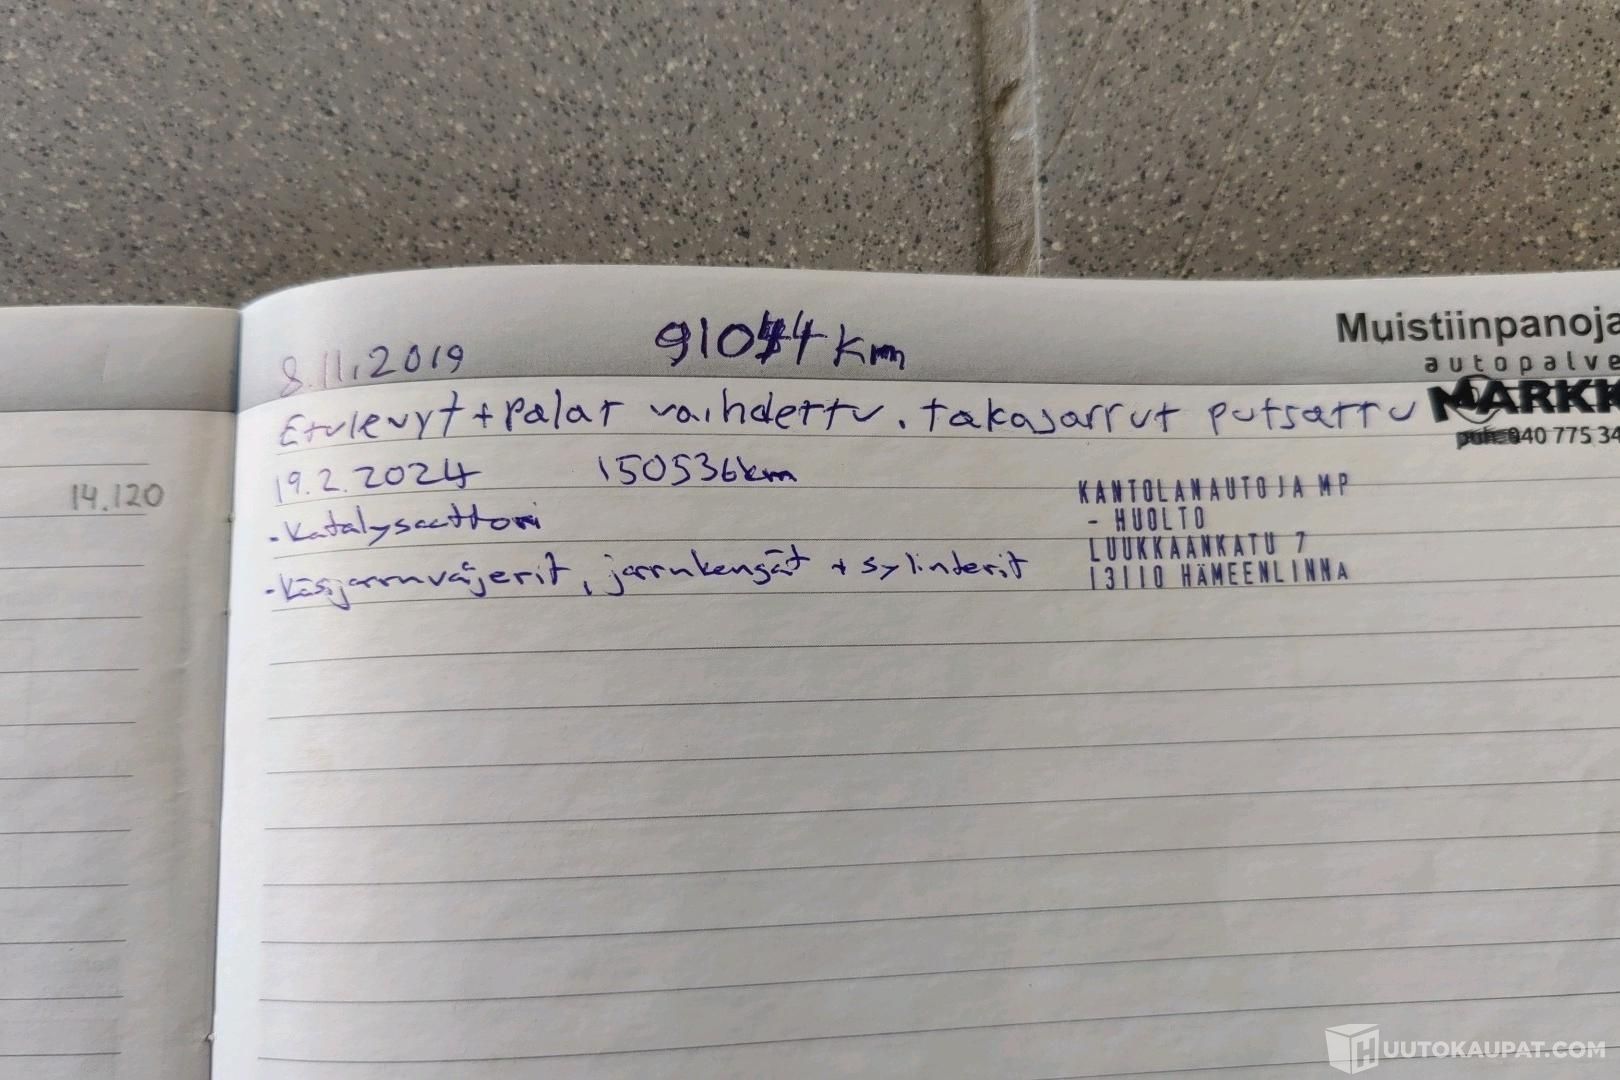 Muistiinpanoja
8.11.2019 km
autopalve
MARKK
Etulevyt + palat vaihdettu. takajarrut putsattu
040 775 34
19.2.2024 150536km
14.120
- Katalysaattori
- Käsijarruvaijerit, jarrukengät + sylinterit
KANTOLANAUTOJA MP
- HUOLTO
LUUKKAANKATU 7
13110 HÄMEENLINNA
HUUTOKAUPAT.COM